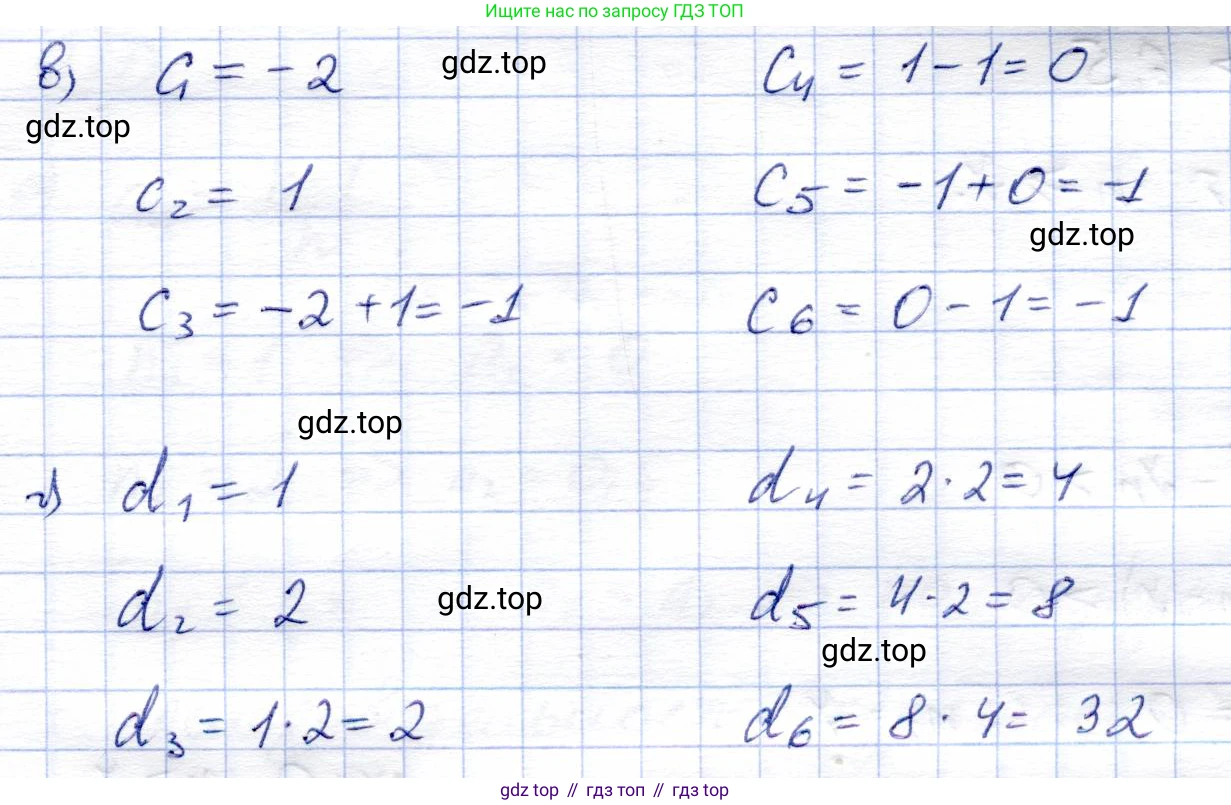 Ищите нас по запросу ГДЗ ТОП
в) C₁ = -2 gdz.top C₄ = 1-1=0
gdz.top
C₂ = 1 C₅ = -1+0=-1
gdz.top
C₃ = -2+1=-1 C₆ = 0-1=-1
gdz.top
г) d₁ = 1 d₄ = 2·2=4
d₂ = 2 gdz.top d₅ = 4·2=8
gdz.top
d₃ = 1·2=2 d₆ = 8·4= 32
gdz top // гдз топ // gdz top